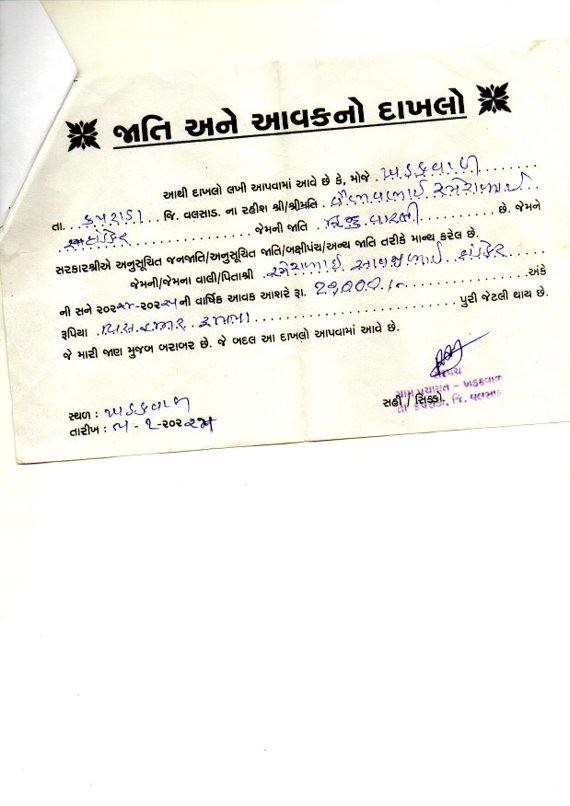 જાતિ અને આવકનો દાખલો
આથી દાખલો લખી આપવામાં આવે છે કે, મોજે ખડકવાળ
તા. કપરાડા જિ. વલસાડ. ના રહીશ શ્રી/શ્રીમતિ રમેશભાઈ
જેમની જાતિ હિન્દુ વારલી છે. જેમને
સરકારશ્રીએ અનુસૂચિત જનજાતિ/અનુસૂચિત જાતિ/બક્ષીપંચ/અન્ય જાતિ તરીકે માન્ય કરેલ છે.
જેમની/જેમના વાલી/પિતાશ્રી રમેશભાઈ
ની સને ૨૦૨૪-૨૦૨૫ની વાર્ષિક આવક આશરે રૂા. અંકે
રૂપિયા હજાર પુરી જેટલી થાય છે.
જે મારી જાણ મુજબ બરાબર છે. જે બદલ આ દાખલો આપવામાં આવે છે.
સ્થળ : ખડકવાળ
તારીખ : ૨૦૨
સહી / સિક્કો.
સરપંચ
ગ્રામ પંચાયત - ખડકવાળ
તા. કપરાડા, જિ. વલસાડ